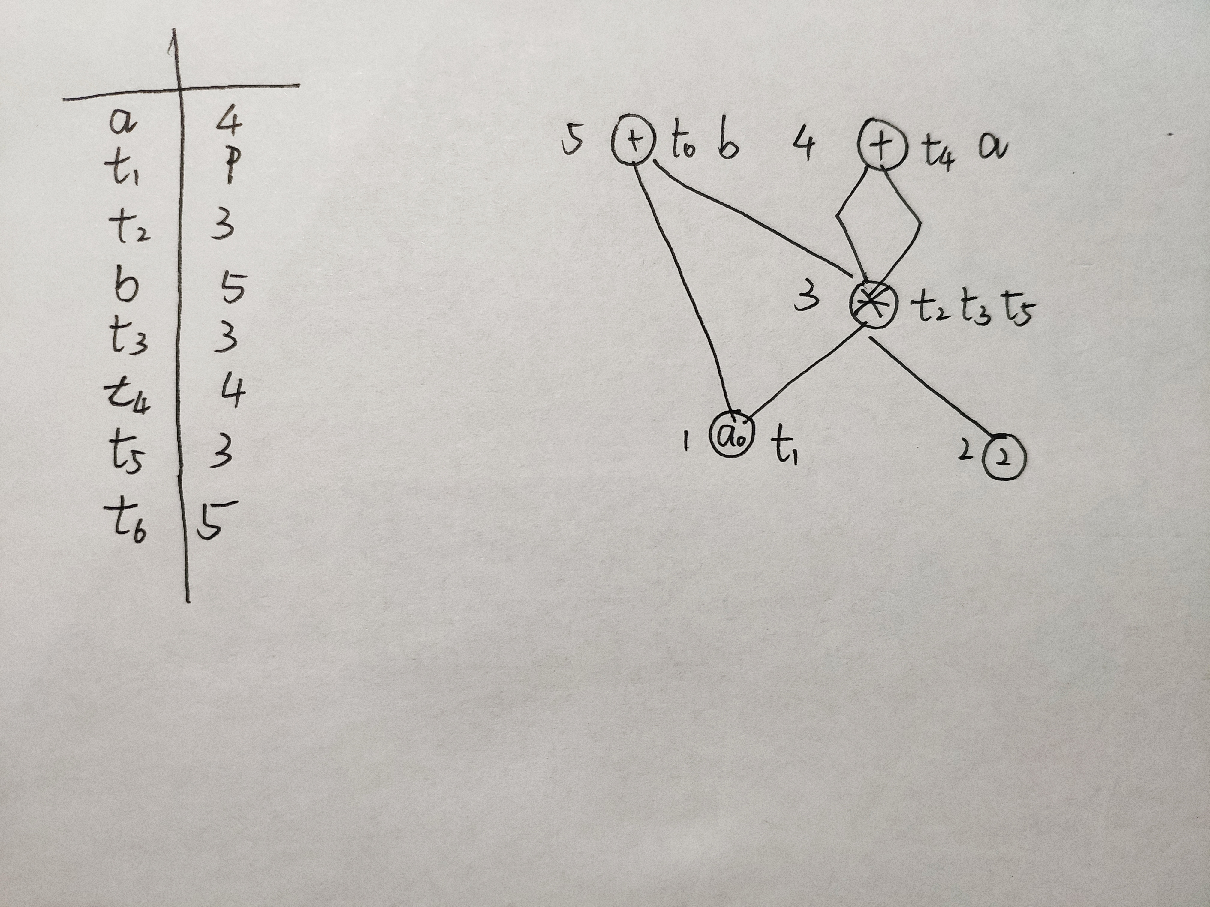 a 4
t₁ P
t₂ 3
b 5
t₃ 3
t₄ 4
t₅ 3
t₆ 5
5 + t₀ b 4 + t₄ a
3 * t₂ t₃ t₅
1 a₀ t₁ 2 2